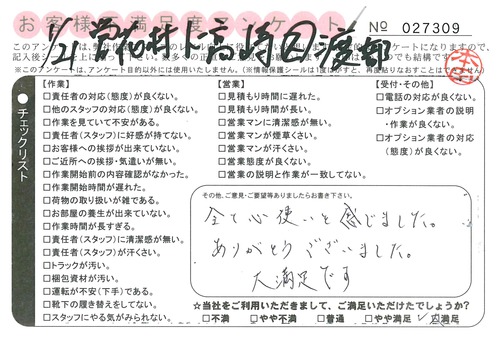 お客様満足度アンケート
№ 027309
1/21
このアンケートは、弊社
記入後
※このアンケートは、アンケート目的以外には使用いたしません。(※情報保護シールは1度はがすと、再度貼りなおすことはできません)
チェックリスト
【作業】
□責任者の対応(態度)が良くない。
□他のスタッフの対応(態度)が良くない。
□作業を見ていて不安がある。
□責任者(スタッフ)に好感が持てない。
□お客様への挨拶が出来ていない。
□ご近所への挨拶・気遣いが無い。
□作業開始前の内容確認がなかった。
□作業開始時間が遅れた。
□荷物の取り扱いが雑である。
□お部屋の養生が出来ていない。
□作業時間が長すぎる。
□責任者(スタッフ)に清潔感が無い。
□責任者(スタッフ)が汗くさい。
□トラックが汚い。
□梱包資材が汚い。
□運転が不安(下手)である。
□靴下の履き替えをしてない。
□スタッフにやる気がみられない。
【営業】
□見積もり時間に遅れた。
□見積もり時間が長い。
□営業マンに清潔感が無い。
□営業マンが煙草くさい。
□営業マンが汗くさい。
□営業態度が良くない。
□営業の説明と作業が一致してない。
【受付・その他】
□電話の対応が良くない。
□オプション業者の説明
・作業が良くない。
□オプション業者の対応
(態度)が良くない。
その他、ご意見・ご要望等ありましたらお書き下さい。
全て心使いと感じました。
ありがとうございました。
大満足です
☆当社をご利用いただきまして、ご満足いただけたでしょうか?
□不満 □やや不満 □普通 □やや満足 □満足